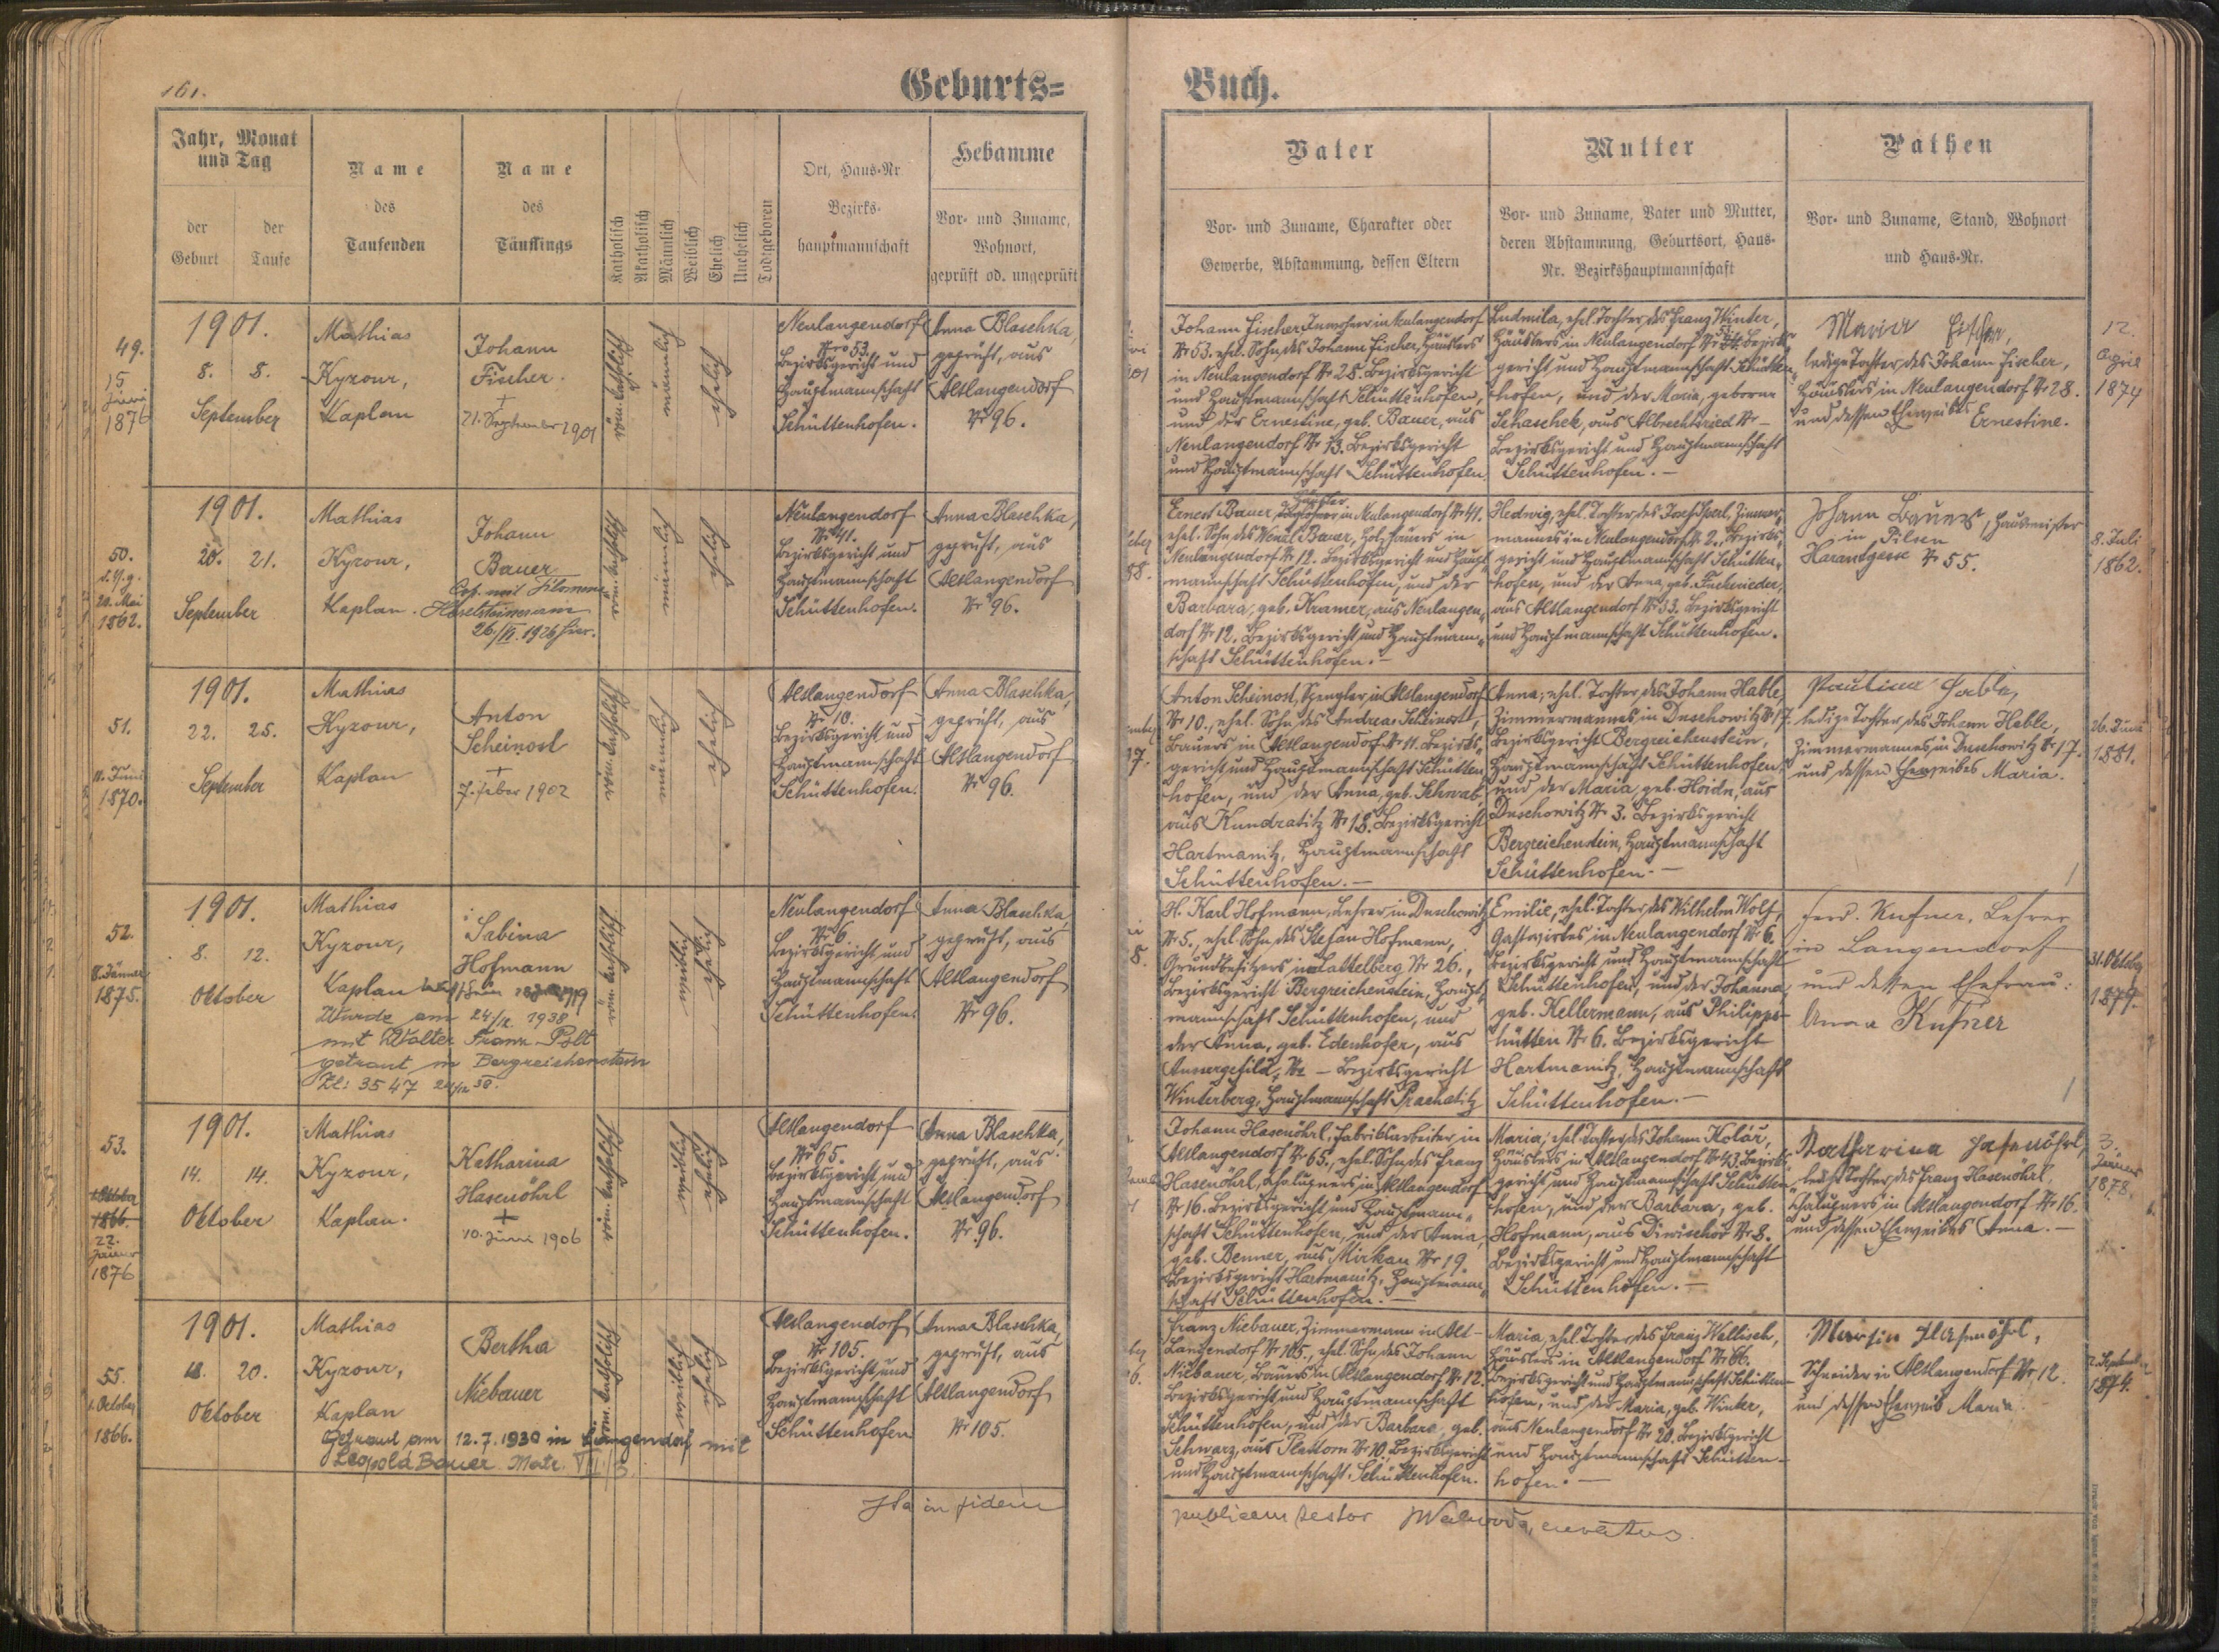 161.
Geburts=
Buch.
Jahr, Monat
und Tag
der
Geburt
der
Taufe
Name
des
Taufenden
Name
des
Täuflings
Katholisch
Akatholisch
Männlich
Weiblich
Ehelich
Unehelich
Todtgeboren
Ort, Haus-Nr
Bezirks-
hauptmannschaft
Hebamme
Vor- und Zuname,
Wohnort,
geprüft od. ungeprüft
Vater
Vor- und Zuname, Charakter oder
Gewerbe, Abstammung, dessen Eltern
Mutter
Vor- und Zuname, Vater und Mutter,
deren Abstammung, Geburtsort, Haus-
Nr. Bezirkshauptmannschaft
Pathen
Vor- und Zuname, Stand, Wohnort
und Haus-Nr.
49.
15
Juni
1876
1901.
8. 8.
September
Mathias
Kyzour,
Kaplan
Johann
Fischer.
+
21. September 1901
röm. katholisch
männlich
ehelich
Neulangendorf
Nro 53.
Bezirksgericht und
Hauptmannschaft
Schüttenhofen.
Anna Blaschka,
geprüft, aus
Altlangendorf
Nr 96.
Johann Fischer, Inwohner in Neulangendorf
Nr 53. ehel. Sohn des Johann Fischer, Häuslers
in Neulangendorf Nr 28. Bezirksgericht
und Hauptmannschaft Schüttenhofen,
und der Ernestine, geb. Bauer, aus
Neulangendorf Nr 13. Bezirksgericht
und Hauptmannschaft Schüttenhofen.
Ludmila, ehel. Tochter des Franz Winter,
Häuslers in Neulangendorf Nr Bezirks-
gericht und Hauptmannschaft Schütten-
hofen, und der Maria, geborne
Schaschek, aus Albrechtsried Nr –
Bezirksgericht und Hauptmannschaft
Schüttenhofen. –
Maria Fischer,
ledige Tochter des Johann Fischer,
Häuslers in Neulangendorf Nr 28.
und dessen Eheweibes Ernestine.
12.
April
1874
50.
20. Mai
1862.
1901.
20. 21.
September
Mathias
Kyzour,
Kaplan.
Johann
Bauer
Cop. mit Filomena
Haselsteinerin am
26./VI. 1926 hier.
röm. katholisch
männlich
ehelich
Neulangendorf
Nr 41.
Bezirksgericht und
Hauptmannschaft
Schüttenhofen.
Anna Blaschka,
geprüft, aus
Altlangendorf
Nr 96.
Ernest Bauer, Häusler in Neulangendorf Nr 41.
ehel. Sohn des Wenzl Bauer, Holzhauers in
Neulangendorf Nr 12. Bezirksgericht und Haupt-
mannschaft Schüttenhofen, und der
Barbara, geb. Kramer, aus Neulangen-
dorf Nr 12. Bezirksgericht und Hauptmann-
schaft Schüttenhofen. –
Hedwig, ehel. Tochter des Josef Sperl, Zimmer-
mannes in Neulangendorf Nr 2. Bezirks-
gericht und Hauptmannschaft Schütten-
hofen, und der Anna, geb.
aus Altlangendorf Nr 33. Bezirksgericht
und Hauptmannschaft Schüttenhofen.
Johann Bauer, Hausmeister
in Pilsen
Nr 55.
8. Juli
1862.
51.
11. Juni
1870.
1901.
22. 25.
September
Mathias
Kyzour,
Kaplan
Anton
Scheinost
+
7. Feber 1902
röm. katholisch
männlich
ehelich
Altlangendorf
Nr 10.
Bezirksgericht und
Hauptmannschaft
Schüttenhofen.
Anna Blaschka,
geprüft, aus
Altlangendorf
Nr 96.
Anton Scheinost, Spengler, in Altlangendorf
Nr 10., ehel. Sohn des Andreas Scheinost,
Bauers in Altlangendorf Nr 11. Bezirks-
gericht und Hauptmannschaft Schütten-
hofen, und der Anna, geb. Schwab,
aus Kundratitz Nr 18. Bezirksgericht
Hartmanitz, Hauptmannschaft
Schüttenhofen. –
Anna, ehel. Tochter des Johann Hable,
Zimmermannes, in Duschowitz Nr 17.
Bezirksgericht Bergreichenstein,
Hauptmannschaft Schüttenhofen,
und der Maria, geb. Hoidn, aus
Duschowitz Nr 3. Bezirksgericht
Bergreichenstein, Hauptmannschaft
Schüttenhofen. –
Paulina Hable,
ledige Tochter des Johann Hable,
Zimmermannes in Duschowitz Nr 17.
und dessen Eheweibes Maria.
26. Juni
1881.
52.
11. Jänner
1875.
1901.
8. 12.
Oktober
Mathias
Kyzour,
Kaplan
Sabina
Hofmann
Wurde am 24/12. 1938
mit Walter Franz Pölt
getraut in Bergreichenstein
Zl: 3547
röm. katholisch
weiblich
ehelich
Neulangendorf
Nr 6.
Bezirksgericht und
Hauptmannschaft
Schüttenhofen.
Anna Blaschka,
geprüft, aus
Altlangendorf
Nr 96.
H. Karl Hofmann, Lehrer in Duschowitz
Nr 5., ehel. Sohn des Stefan Hofmann,
Grundbesitzers in Lattelberg Nr 26.,
Bezirksgericht Bergreichenstein, Haupt-
mannschaft Schüttenhofen, und
der Anna, geb. Edenhofer, aus
Aussergefild, Nr – Bezirksgericht
Winterberg, Hauptmannschaft Prachatitz
Emilie, ehel. Tochter des Wilhelm Wolf,
Gastwirtes in Neulangendorf Nr 6.
Bezirksgericht und Hauptmannschaft
Schüttenhofen, und der Johanna,
geb. Kellermann, aus Philipps-
hütten Nr 6. Bezirksgericht
Hartmanitz, Hauptmannschaft
Schüttenhofen. –
Ferd. Kufner, Lehrer
in Langendorf
und dessen Ehefrau:
Anna Kufner
31. Oktob.
1879.
53.
1866.
22.
Jänner
1876
1901.
14. 14.
Oktober
Mathias
Kyzour,
Kaplan.
Katharina
Hasenöhrl
+
10. Juni 1906
röm. katholisch
weiblich
ehelich
Altlangendorf
Nr 65.
Bezirksgericht und
Hauptmannschaft
Schüttenhofen.
Anna Blaschka,
geprüft, aus
Altlangendorf
Nr 96.
Johann Hasenöhrl, Fabriksarbeiter in
Altlangendorf Nr 65., ehel. Sohn des Franz
Hasenöhrl, Chalupners in Altlangendorf
Nr 16. Bezirksgericht und Hauptmann-
schaft Schüttenhofen, und der Anna,
geb. Benner, aus Mirkau Nr 19.
Bezirksgericht Hartmanitz, Hauptmann-
schaft Schüttenhofen. –
Maria, ehel. Tochter des Johann Kolář,
Häuslers in Altlangendorf Nr 43. Bezirks-
gericht und Hauptmannschaft Schütten-
hofen, und der Barbara, geb.
Hofmann, aus Diwischov Nr 8.
Bezirksgericht und Hauptmannschaft
Schüttenhofen. –
Katharina Hasenöhrl,
ledige Tochter des Franz Hasenöhrl,
Chalupners in Altlangendorf Nr 16.
und dessen Eheweibes Anna. –
3.
Jänner
1878.
55.
1. October
1866.
1901.
18. 20.
Oktober
Mathias
Kyzour,
Kaplan
Bertha
Niebauer
Getraut am 12.7.1930 in Langendorf mit
Leopold Bauer Matr. VII. 3
röm. katholisch
weiblich
ehelich
Altlangendorf
Nr 105.
Bezirksgericht und
Hauptmannschaft
Schüttenhofen
Anna Blaschka,
geprüft, aus
Altlangendorf
Nr 105.
Franz Niebauer, Zimmermann in Alt-
Langendorf Nr 105., ehel. Sohn des Johann
Niebauer, Bauers in Altlangendorf Nr 12.
Bezirksgericht und Hauptmannschaft
Schüttenhofen, und der Barbara, geb.
Schwarz, aus Plattorn Nr 10, Bezirksgericht
und Hauptmannschaft Schüttenhofen.
Maria, ehel. Tochter des Franz Wellisch,
Häuslers in Altlangendorf Nr 66.
Bezirksgericht und Hauptmannschaft Schütten-
hofen, und der Maria, geb. Winter,
aus Neulangendorf Nr 20. Bezirksgericht
und Hauptmannschaft Schütten-
hofen. –
Martin Hasenöhrl,
Schneider in Altlangendorf Nr 12.
und dessen Eheweib Maria.
2. Septemb.
1874.
Ita in fidem
publicam testor
curatus.